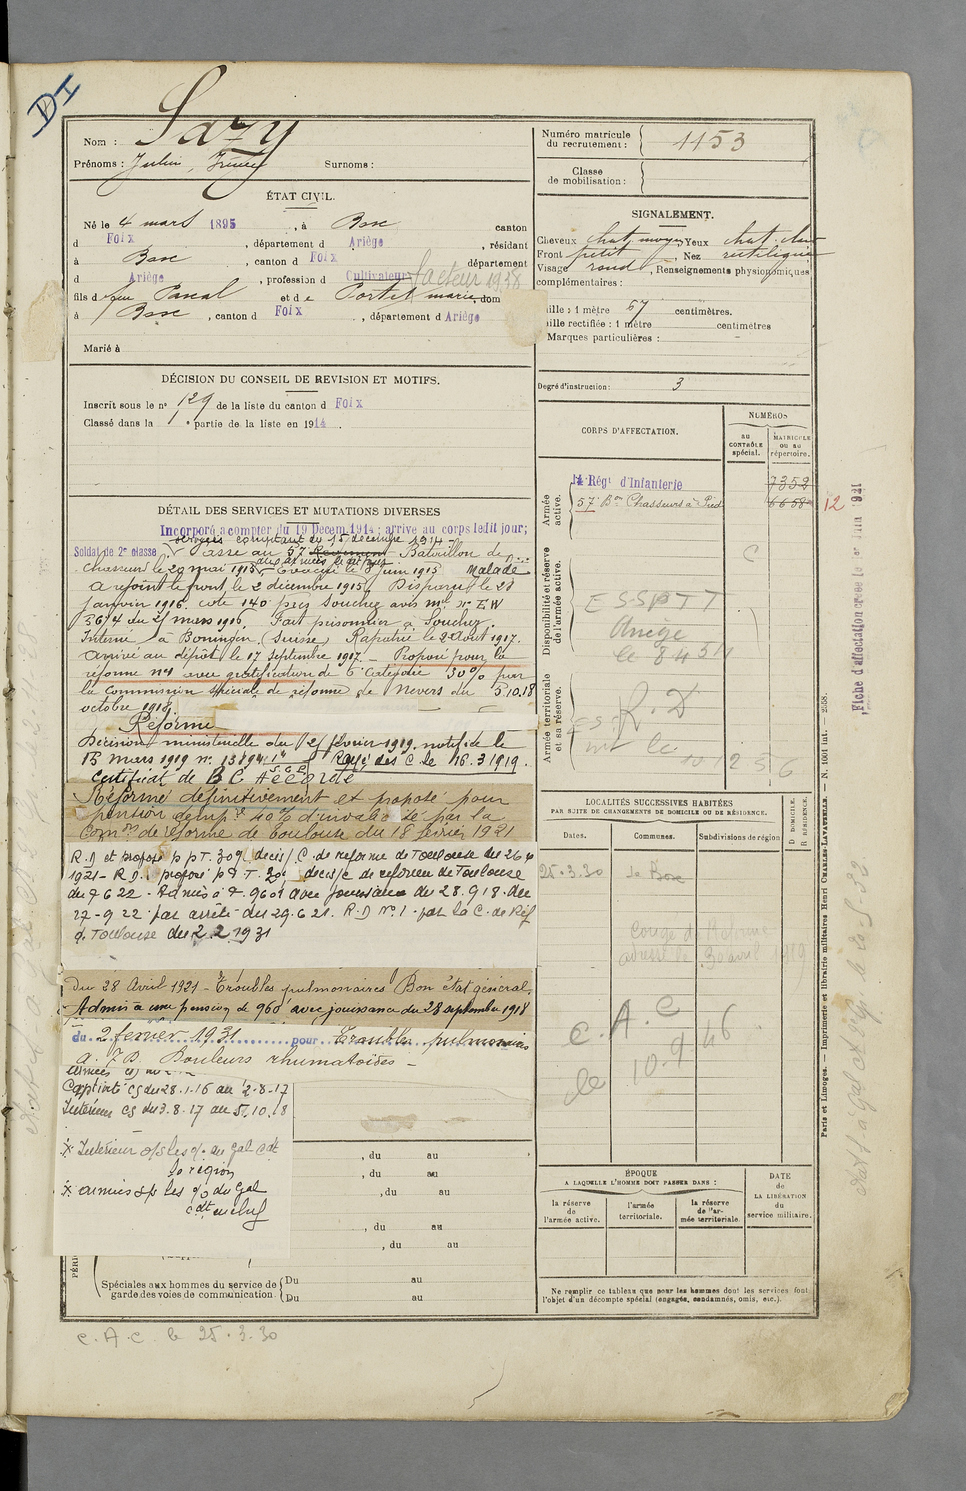 DI
Nom : Sazy
Prénoms : Julien, Surnoms :
ÉTAT CIVIL.
Né le 4 mars 1895, à Bosc canton
d Foix, département d Ariège, résidant
à Bosc, canton d Foix département
d Ariège, profession d Cultivateur facteur 1938
fils d feu Pascal et d e Portet marie, dom
à Bosc, canton d Foix, département d Ariège
Marié à
DÉCISION DU CONSEIL DE REVISION ET MOTIFS.
Inscrit sous le n° 129 de la liste du canton d Foix
Classé dans la 1e partie de la liste en 1914.
DÉTAIL DES SERVICES ET MUTATIONS DIVERSES
Incorporé à compter du 19 Decem. 1914; arrivé au corps ledit jour;
services comptant du 15 décembre 1914
Soldat de 2e classe Passé au 57e Regiment Bataillon de
Chasseurs le 29 mai 1915 aux armées le dit jour Evacué le 8 juin 1915 malade
a rejoint le front le 2 décembre 1915 Disparu le 28
janvier 1916 cote 140 près Souchez avis ml n° EW
du 21 mars 1916. Fait prisonnier à Souchez.
Interné à Boningen (Suisse) Rapatrié le 2 Aout 1917.
arrivé au dépôt le 17 Septembre 1917. Proposé pour la
réforme n°1 avec gratification de 6e Catégorie 30% par
la Commission Spéciale de réforme de Nevers du 5.10.18
octobre 1918.
Réformé
Décision ministérielle du 21 février 1919. notifiée le
13 mars 1919 n° 13894 Rayé des C. le 16.3.1919.
Certificat de B C Accordé
Réformé définitivement et proposé pour
pension temp re 40% d'invalidité par la
Comon de réforme de Toulouse du 18 février 1921
R.D et proposé p p T. 30% décis/ C. de réforme de Toulouse du 26 4
1921 - R.D. proposé p d T. 20% décis/c de réforme de Toulouse
du 7 6 22 - Admis à P. 960f avec jouissance du 28.9.18. au
27-9 22 par arrêté du 29.6.21. R.D N° 1. par la C. de Réf
à Toulouse du 2.2.1931
Du 28 Avril 1921 - Troubles pulmonaires Bon état général.
Admis à une pension de 960f avec jouissance du 28 septembre 1918
du 2 février 1931 pour Troubles pulmonaires
Douleurs rhumatoïdes -
Captivité CS du 28-1-16 au 2-8-17
Intérieur CS du 3.8.17 au 5.10.18
* Intérieur o/s les o/. du Gal Cdt
la région
* armées s/s les o/o du Gal
cdt en chef
, du au
, du au
, du au
, du au
, du au
Spéciales aux hommes du service de garde des voies de communication. Du au
Du au
C.A.C. le 25.3.30
Numéro matricule du recrutement : 1153
Classe de mobilisation :
SIGNALEMENT.
Cheveux chat. moyen Yeux chat. clair
Front petit, Nez rectiligne
Visage rond, Renseignements physionomiques
complémentaires :
Taille : 1 mètre 67 centimètres.
Taille rectifiée : 1 mètre centimètres
Marques particulières :
Degré d'instruction : 3
CORPS D'AFFECTATION.
NUMÉROS
AU CONTRÔLE spécial.
MATRICULE OU AU répertoire.
Armée active.
14 Régt d'Infanterie 7352
57e Bon Chasseurs à Pied 6658 12
Disponibilité et réserve de l'armée active.
C
ESSPTT
Ariège
le 8 4 51
Armée territoriale et sa réserve.
R.D
le
Fiche d'affectation créée le 1er Juin 1921
LOCALITÉS SUCCESSIVES HABITÉES
PAR SUITE DE CHANGEMENTS DE DOMICILE OU DE RÉSIDENCE.
Dates. Communes. Subdivisions de région
D DOMICILE.
R RÉSIDENCE.
25.3.30 Le Bosc
Congé de Réforme
adressé le 30 avril 1919
C.A.C
le 10.9.46
ÉPOQUE
A LAQUELLE L'HOMME DOIT PASSER DANS :
la réserve de l'armée active.
l'armée territoriale.
la réserve de l'armée territoriale.
DATE de LA LIBÉRATION du service militaire.
Ne remplir ce tableau que pour les hommes dont les services font
l'objet d'un décompte spécial (engagés, condamnés, omis, etc.).
Paris et Limoges. — Imprimerie et librairie militaires Henri CHARLES-LAVAUZELLE. — N. 1001 int. — 2558.